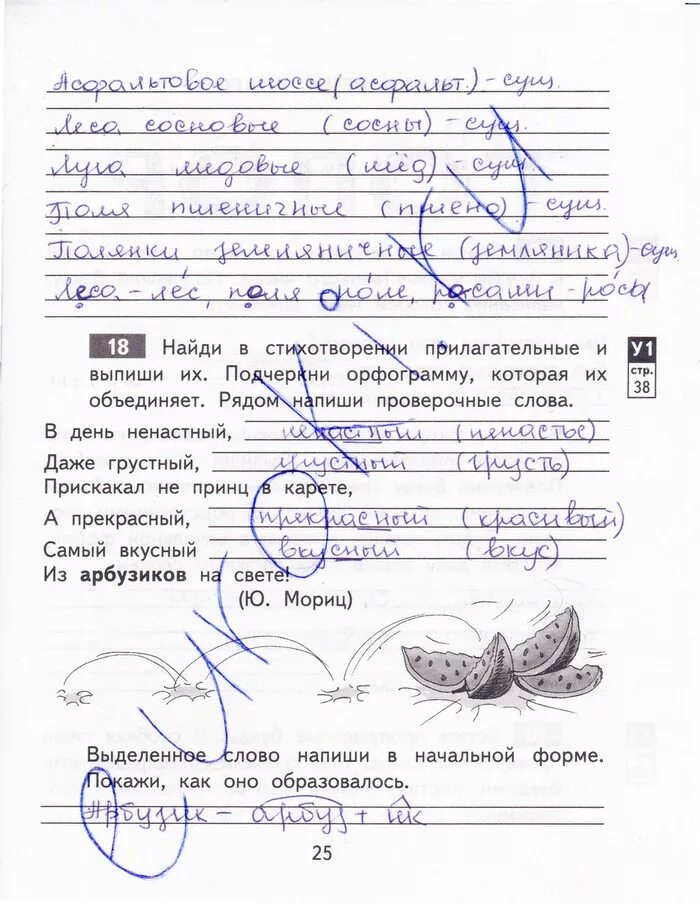 Асфальтовое шоссе (асфальт.) - сущ.
Леса сосновые (сосны) - сущ.
Луга медовые (мёд) - сущ.
Поля пшеничные (пшено) - сущ.
Полянки земляничные (земляника) - сущ
Леса - лес, поля по́ле, росами - ро́сы
18 Найди в стихотворении прилагательные и
У1 стр. 38
выпиши их. Подчеркни орфограмму, которая их
объединяет. Рядом напиши проверочные слова.
В день ненастный, ненастный (ненастье)
Даже грустный, грустный (грусть)
Прискакал не принц в карете,
А прекрасный, прекрасный (красивый)
Самый вкусный вкусный (вкус)
Из арбузиков на свете!
(Ю. Мориц)
Выделенное слово напиши в начальной форме.
Покажи, как оно образовалось.
Арбузик - арбуз + ик
25